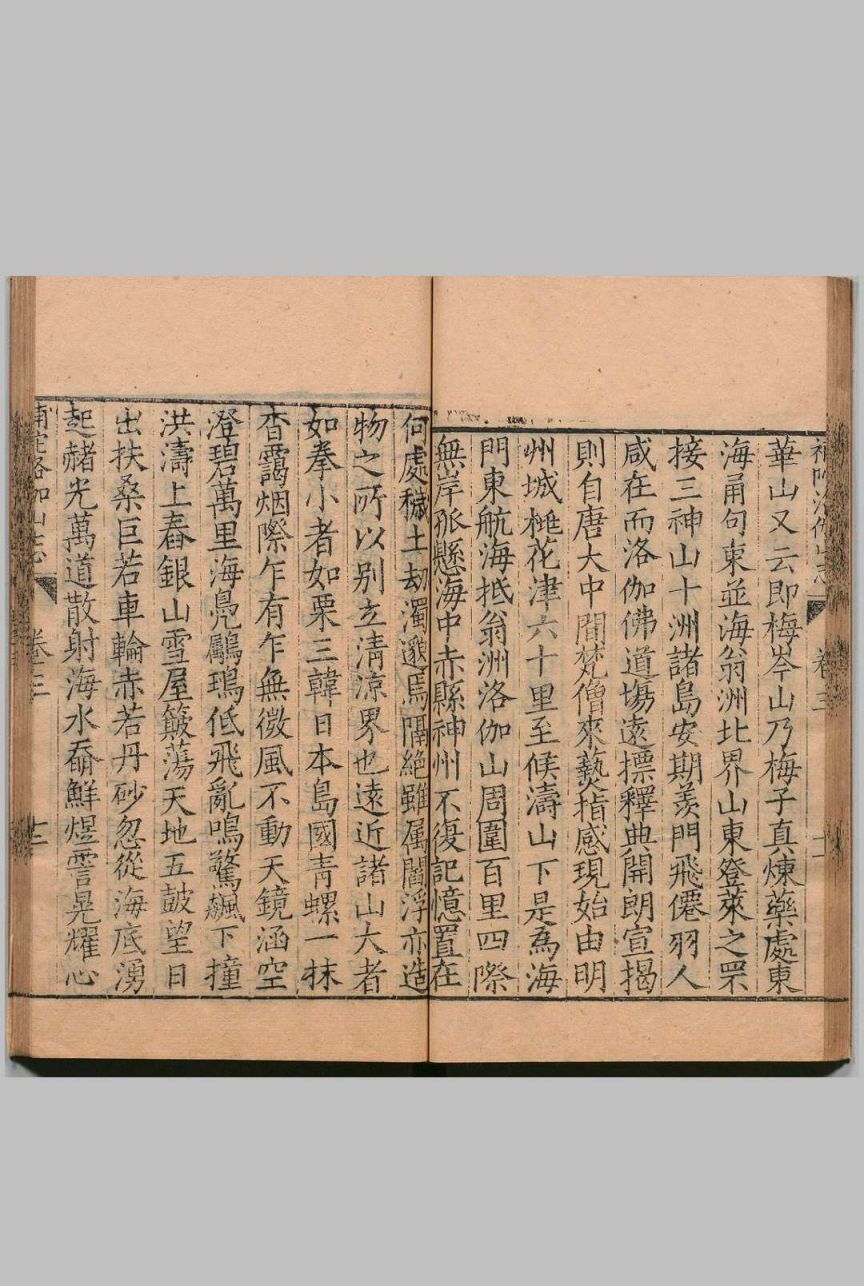 華山又云即梅岑山乃梅子真煉藥處東
海甬句東並海翁洲北界山東登萊之罘
接三神山十洲諸島安期羨門飛僊羽人
咸在而洛伽佛道場遠摽釋典開朗宣揭
則自唐大中間梵僧來爇指感現始由明
州城桃花津六十里至候濤山下是為海
門東航海抵翁洲洛伽山周圍百里四際
無岸孤懸海中赤縣神州不復記憶置在
何處穢土劫濁邈焉隔絕雖属閻浮亦造
物之所以别立清凉界也遠近諸山大者
如拳小者如栗三韓日本島國青螺一抹
杳靄烟際乍有乍無微風不動天鏡涵空
澄碧萬里海鳧鸍鳿低飛亂鳴驚飆下撞
洪濤上舂銀山雪屋簸蕩天地五鼓望日
出扶桑巨若車輪赤若丹砂忽從海底湧
起赭光萬道散射海水鮮煜霅晃耀心
洛伽山志 卷三 十二